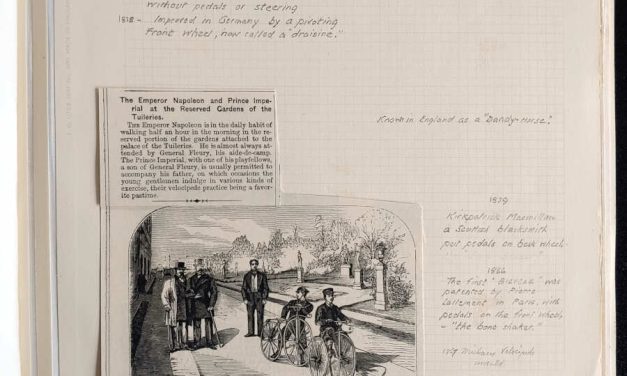 without pedals or steering
1818 - Improved in Germany by a pivoting
front wheel, now called a "draisine."
The Emperor Napoleon and Prince Impe-
rial at the Reserved Gardens of the
Tuileries.
THE Emperor Napoleon is in the daily habit of
walking half an hour in the morning in the re-
served portion of the gardens attached to the
palace of the Tuileries. He is almost always at-
tended by General Fleury, his aide-de-camp.
The Prince Imperial, with one of his playfellows,
a son of General Fleury, is usually permitted to
accompany his father, on which occasions the
young gentlemen indulge in various kinds of
exercise, their velocipede practice being a favor-
ite pastime.
Known in England as a "Dandy-Horse".
1839
Kirkpatrick Macmillan
a Scottish blacksmith
put pedals on back wheel
1866
The first "Bicycle" was
patented by Pierre
Lallement in Paris, with
pedals on the front wheel
- "the bone shaker."
Velocipede